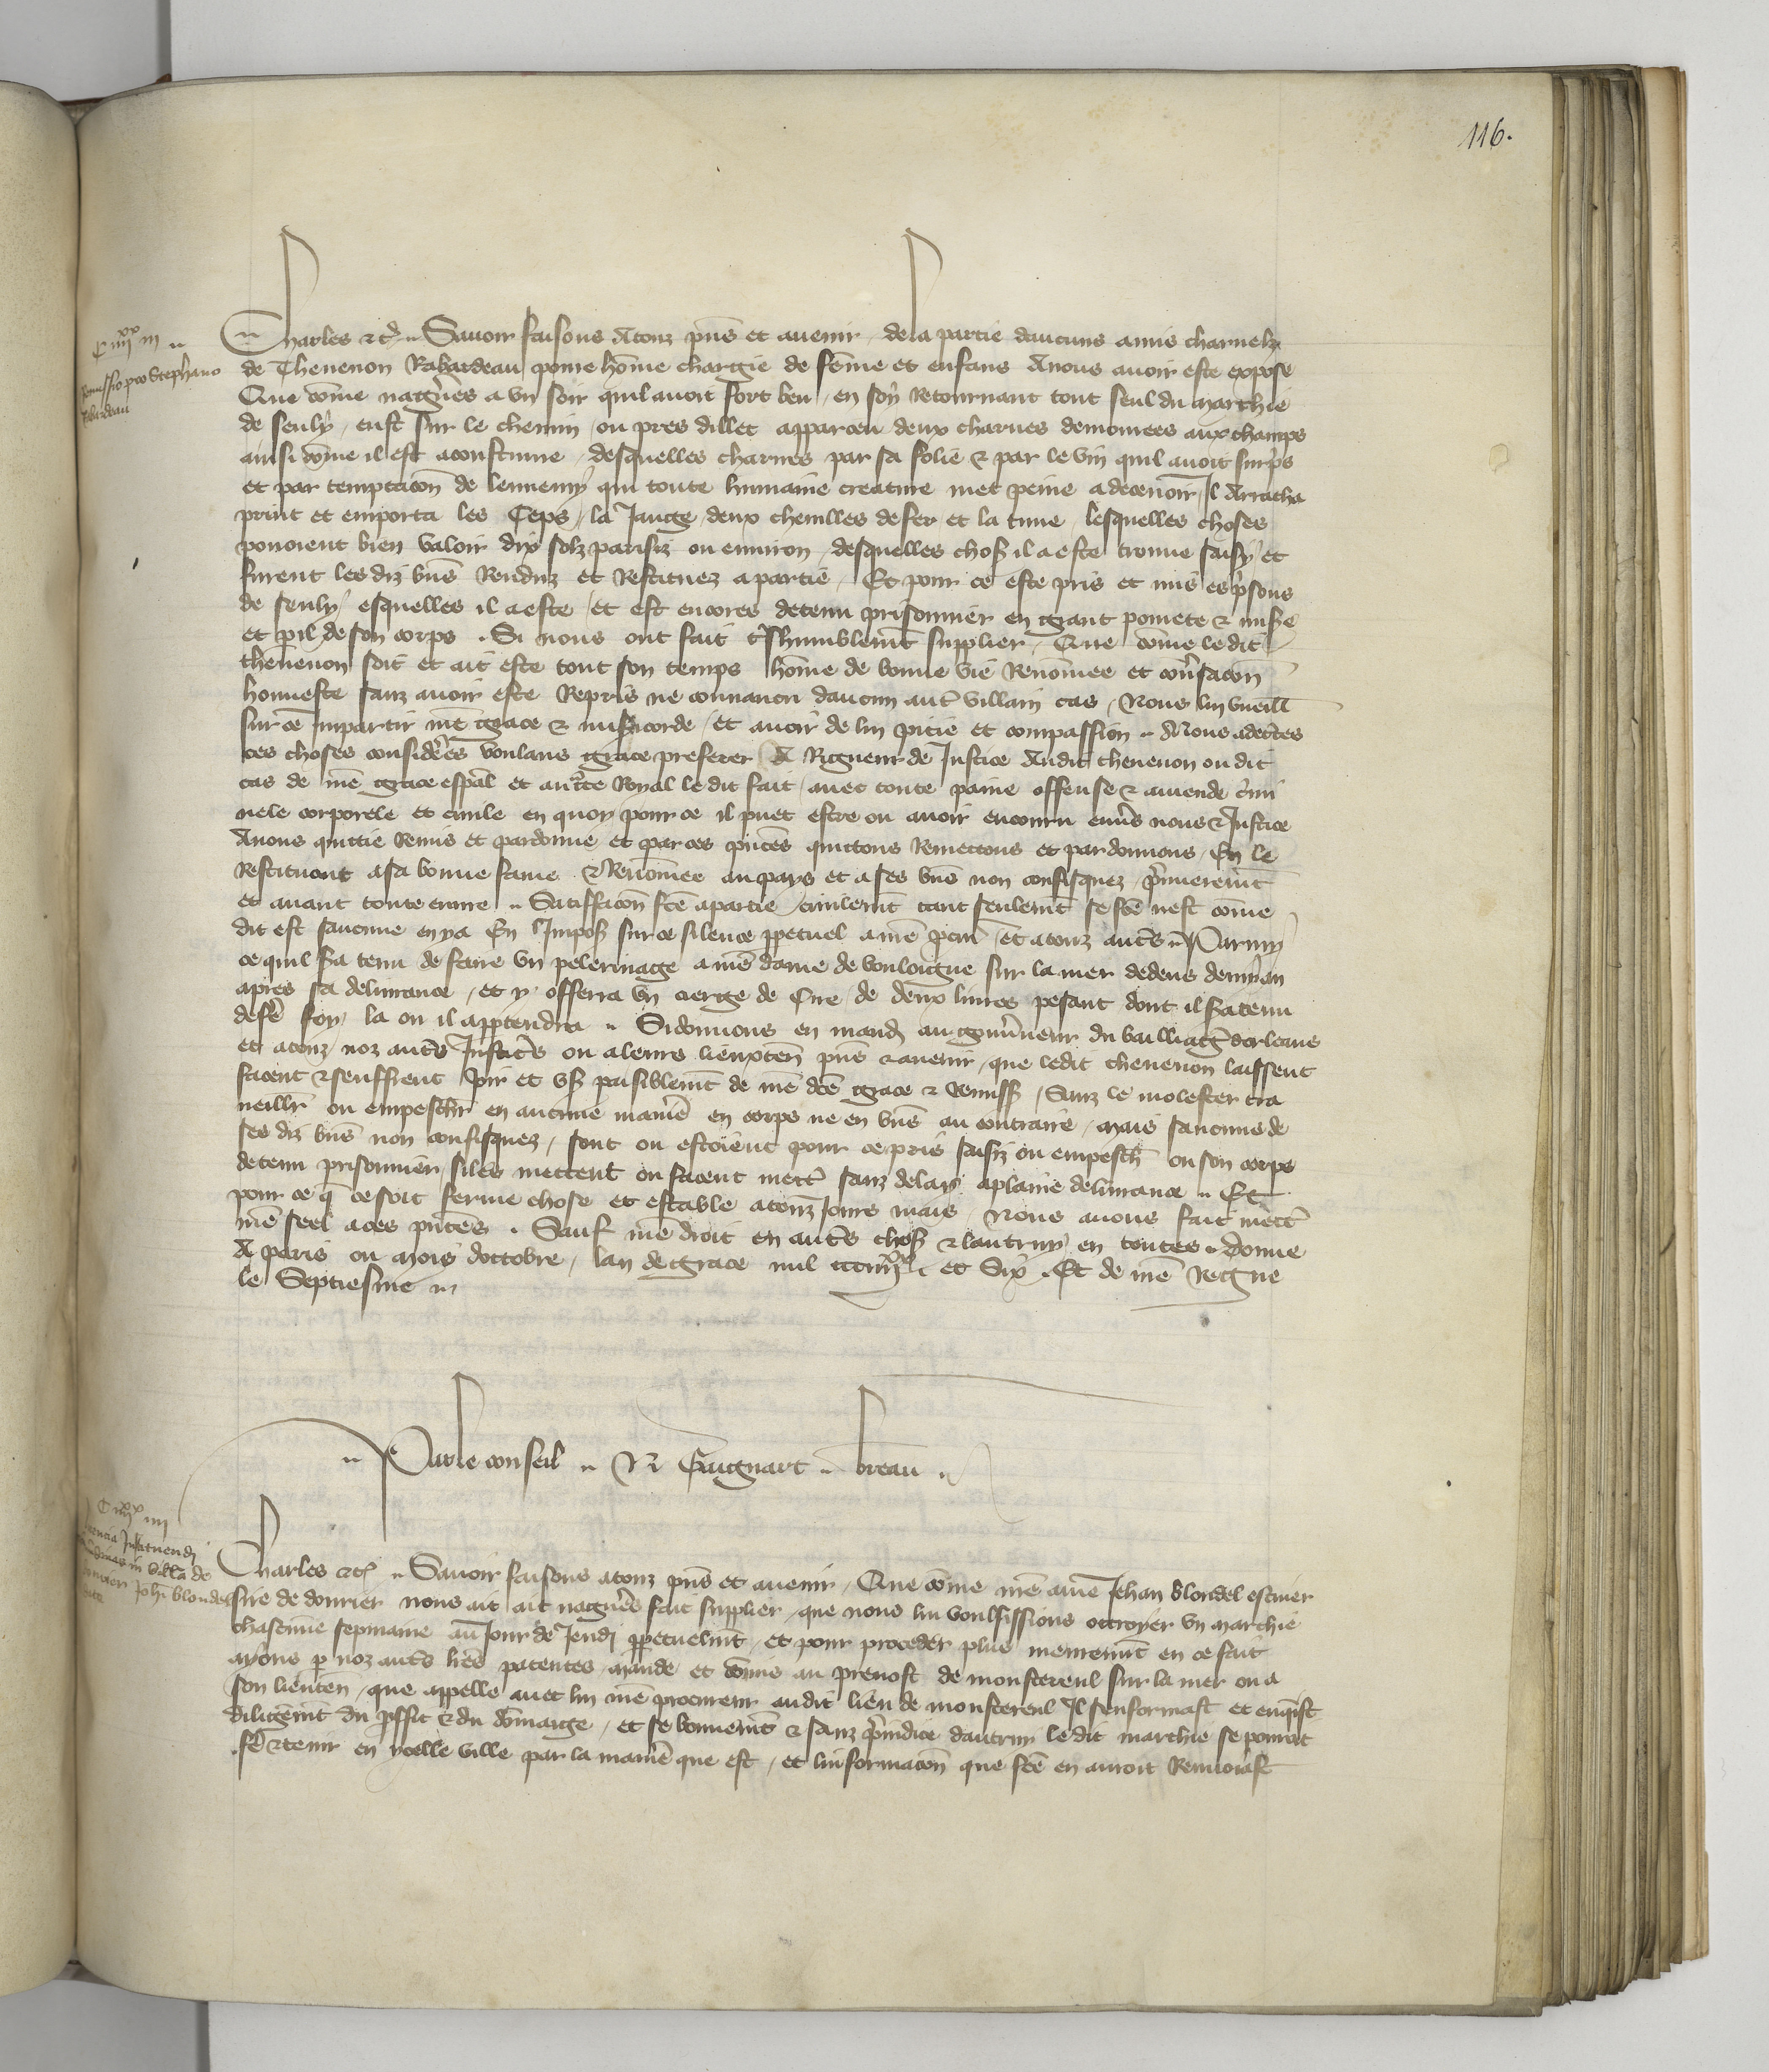 116.
C iiijxx iij
Remissio pro Stephano
Rabardeau
Charles etc. Savoir faisons A touz pñs et avenir, de la partie daucuns amis charnelz
de Thevenon Rabardeau povre hõme chargie de fẽme et enfans A nous avoir este expose
Que cõme nagẽres a un soir quil avoit fort beu, en soy Retournant tout seul du marchie
de seuly, eust sur le chemin ou pres dillec apparceu deux charues demourees aux champs
ainsi cõme il est acoustume, desquelles charues par sa folie & par le vin quil avoit surp̃s
et par temptacõn de lennemy qui toute humaine creature met peine a decevoir, Il Arracha
print et emporta les Ceps, la Jauge, deux chevilles de fer et la lesquelles choses
povoient bien valoir dix solz parisiz ou environ, desquelles chos il a este trouve saisy et
furent les diz bñs Renduz et Restituez a partie, Et pour ce este pris et mis es p̃sons
de seuly esquelles il a este et est encores detenu prisonnier en grant povrete & mise
et p̃il de son corps. Si nous ont fait tshumblemt supplier, Que cõme le dit
thevenon soit et ait este tout son temps hõme de bonne vie Renõmee et cõvsacõn
honneste sanz avoir este Repris ne convaincu daucun aut̃ villain cas, Nous lui vueill
sur ce impartir nr̃e grace & misicorde, et avoir de lui pitie et compassion. Nous adectes
ces choses considẽres voulans grace preferer A Rigueur de Justice Audit thevenon ou dit
cas de nr̃e grace esp̃al et auctte Royal le dit fait, avec toute paine offense & amende c̃mi
nele corporele et civile en quoy pour ce il puet estre ou avoir encouru envs nous & Justice
Avons quittie Remis et pardonne et par ces pñtes quittons Remettons et pardonnons, En le
Restituant a sa bonne fame & Renõmee au pays et a ses bñs non confisquez, p̃mieremt
et avant toute euvre. Satiffacõn fcẽ a partie civilemt tant seulemt se fcẽ nest cõme
dit est saucune en ya En Impos sur ce silence ppetuel a nr̃e pcur et a touz autes Parmy
ce quil sa tenu de faire un pelerinage a nr̃e dame de bouloigne sur la mer dedens demy an
apres sa delivrance, et y offerra un cierge de Cire de deux livres pesant dont il sa tenu
de fẽ foy, la ou il apptendra. Si donnons en mand au gouvneur du bailliage dorleans
et a touz noz autes Justics ou a leurs lieuxten pñs & avenir, que ledit thevenon laissent
facent & seuffrent Joir et us paisiblemt de nr̃e dcẽ grace & Remiss, Sanz le molester tra
veillr ou empeschr en aucune maniẽ en corps ne en bñs au contraire, mais saucuns de
ses diz bñs non confisquez, sont ou estoient pour ce pris saisiz ou empesch ou son corps
detenu prisonnier, siles mettent ou facent mett̃ sanz delay a plaine delivrance. Et
pour ce q̃ ce soit ferme chose et estable a touz Jours mais, Nous avons fait mett̃
nr̃e seel a ces pñtes. Sauf nr̃e droit en autes chos & lautruy en toutes. Donne
A paris ou mois doctobre, lan de grace mil ccc iiijxx et Six. Et de nr̃e Regne
le Septiesme
Par le conseil. N Gaignart. breau.
C iiijxx iiij
licencia Instituendi
nundinas in villa de
Joh blondel
Charles etc. Savoir faisons a touz pñs et avenir, Que cõme nr̃e ame Jehan blondel escuier
sire de dourier nous ait ait nagẽres fait supplier, que nous lui voulsissions ottroyer un marchie
chascune sepmaine au Jour de Jeudi ppetuelmt, et pour proceder plus meuremt en ce fait
ayons p noz autes lr̃es patentes mande et cõmis au prevost de monstereul sur la mer ou a
son lieuten, que appelle avec lui nr̃e procureur audit lieu de monstereul Il senformast et enqist
diligemt du pffit & du dõmaige, et se bonnemt & sanz p̃iudice dautruy le dit marchie se pouroit
fẽ & tenir en ycelle ville par la maniẽ que est, et linformacõn que fcẽ en auroit Renvoiast